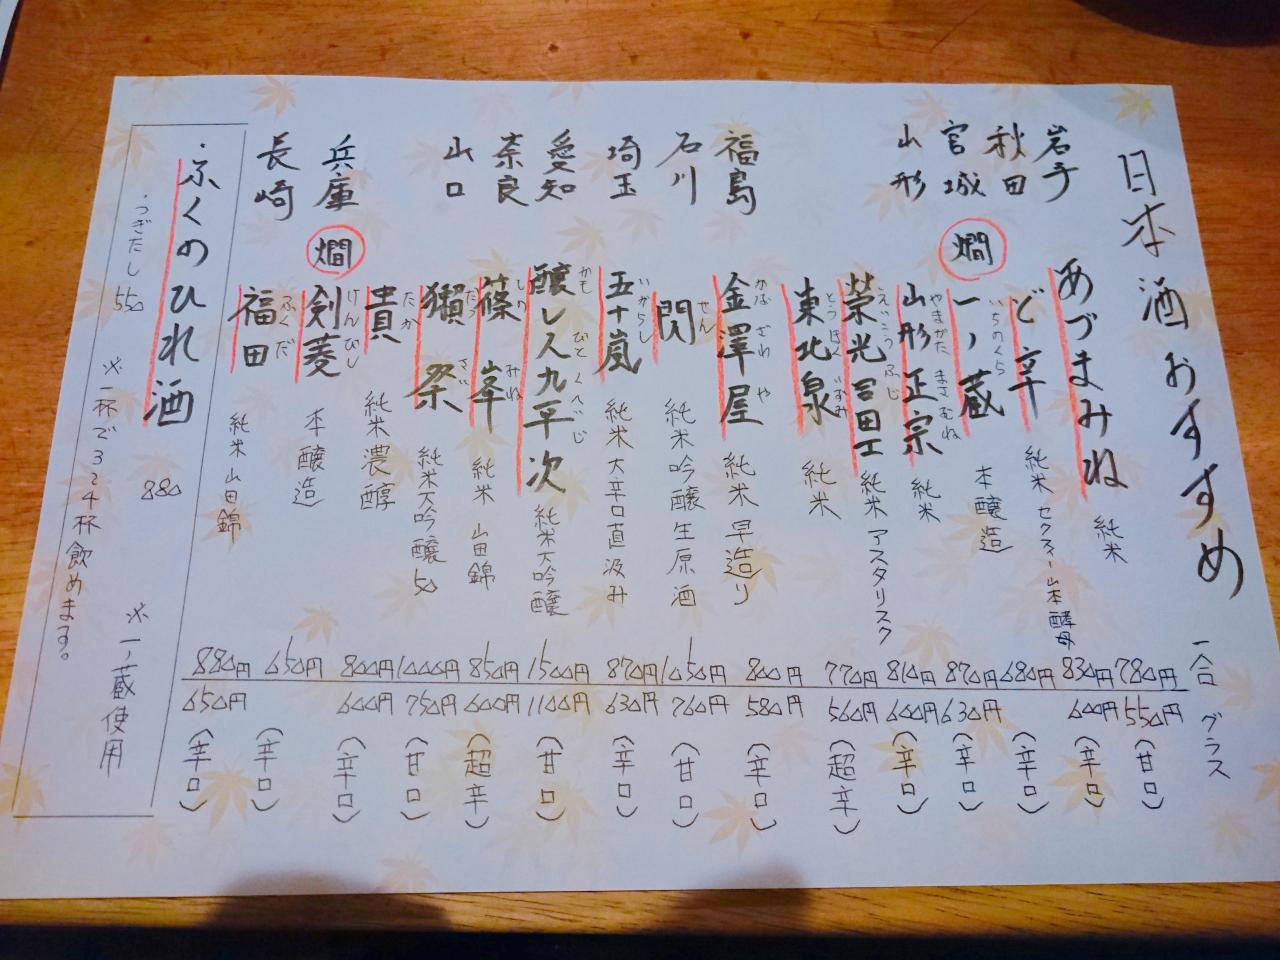 日本酒おすすめ 一合 グラス
岩手 あづまみね 純米 780円 550円 (甘口)
秋田 ど辛 純米 セクスィー山本酵母 830円 600円 (辛口)
宮城 燗 一ノ蔵 いちのくら 本醸造 680円 (辛口)
山形 山形正宗 やまがた まさむね 純米 870円 630円 (甘口)
栄光冨士 えいこうふじ 純米 アスタリスク 810円 600円 (辛口)
東北泉 とうほくいずみ 純米 770円 560円 (超辛)
福島 金澤屋 かなざわや 純米 早造り 800円 580円 (辛口)
石川 閃 せん 純米吟醸 生原酒 1050円 760円 (甘口)
埼玉 五十嵐 いがらし 純米 大辛口直汲み 870円 630円 (辛口)
愛知 醸し人九平次 かもしびとくへいじ 純米大吟醸 1500円 1100円 (甘口)
奈良 篠峯 しのみね 純米 山田錦 850円 600円 (超辛)
山口 獺祭 だっさい 純米大吟醸 50 1000円 750円 (甘口)
貴 たか 純米濃醇 800円 600円 (辛口)
兵庫 燗 剣菱 けんびし 本醸造 650円 (辛口)
長崎 福田 ふくだ 純米 山田錦 880円 650円 (辛口)
・ふくのひれ酒 880 ※一ノ蔵使用
・つぎたし 550 ※一杯で3〜4杯飲めます。